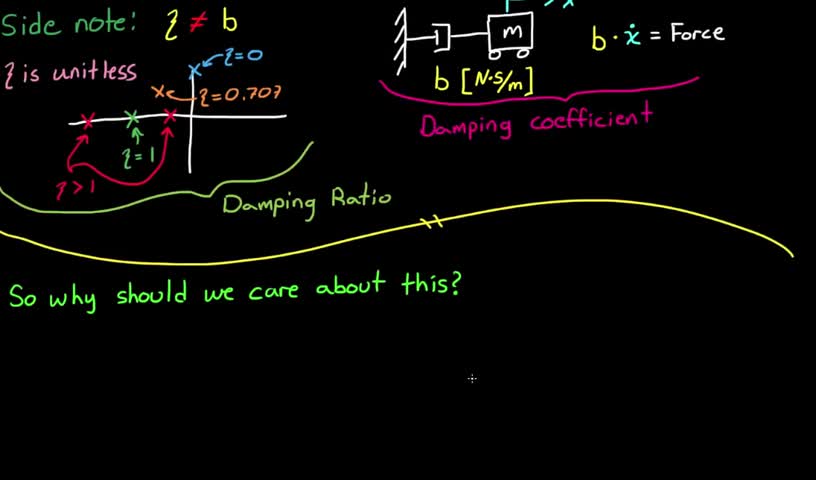 Side note: ζ ≠ b
ζ is unitless
ζ=0
ζ=0.707
ζ=1
ζ>1
Damping Ratio
x
m
b · ẋ = Force
b [N·S/m]
Damping coefficient
So why should we care about this?